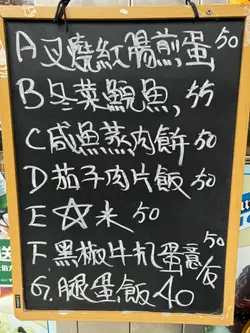 A叉燒紅腸煎蛋50
B冬菜鯇魚,55
C咸魚蒸肉餅50
D茄子肉片飯50
E☆米50
F黑椒牛扒蛋意/飯50
G.腿蛋飯40